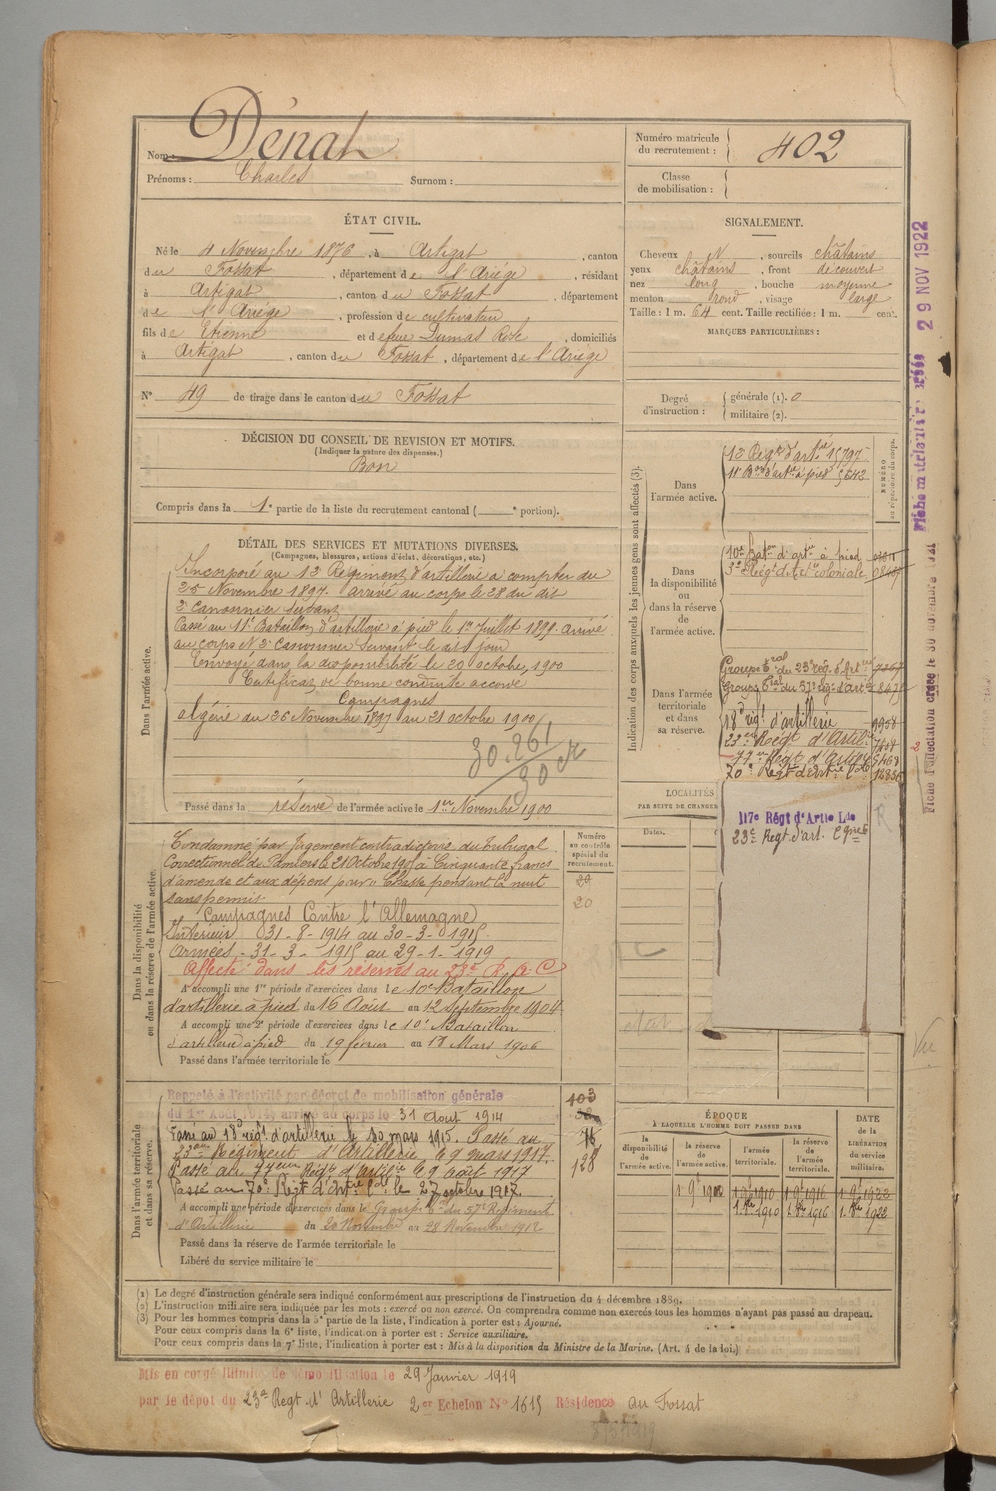 Nom : Dénat
Prénoms : Charles Surnom :
Numéro matricule du recrutement : 402
Classe de mobilisation :
ÉTAT CIVIL.
Né le 4 Novembre 1876, à Artigat, canton
du Fossat, département de l'Ariège, résidant
à Artigat, canton du Fossat, département
de l'Ariège, profession de cultivateur
fils de Etienne et de feue Dumas Rose, domiciliés
à Artigat, canton du Fossat, département de l'Ariège
N° 49 de tirage dans le canton du Fossat
SIGNALEMENT.
Cheveux N, sourcils châtains
yeux châtains, front découvert
nez long, bouche moyenne
menton rond, visage large
Taille : 1 m. 64 cent. Taille rectifiée : 1 m. cent.
MARQUES PARTICULIÈRES :
Degré d'instruction : générale (1). 0
militaire (2).
DÉCISION DU CONSEIL DE REVISION ET MOTIFS.
(Indiquer la nature des dispenses.)
Bon
Compris dans la 1e partie de la liste du recrutement cantonal ( e portion).
DÉTAIL DES SERVICES ET MUTATIONS DIVERSES.
(Campagnes, blessures, actions d'éclat, décorations, etc.)
Dans l'armée active.
Incorporé au 12e Régiment d'artillerie à compter du
25 Novembre 1897. arrivé au corps le 28 du dit
2e Canonnier servant
Passé au 11e Bataillon d'artillerie à pied le 1er Juillet 1899. Arrivé
au corps et 2e Canonnier servant le dit jour
Envoyé dans la disponibilité le 20 octobre, 1900
Certificat de bonne conduite accordé
Campagnes
Algérie du 26 Novembre 1897 au 21 octobre 1900
30.261
30
Passé dans la réserve de l'armée active le 1er Novembre 1900
Dans la disponibilité ou dans la réserve de l'armée active.
Condamné par Jugement contradictoire du tribunal
Correctionnel de Pamiers le 21 Octobre 1901 à Cinquante francs
d'amende et aux dépens pour Chasse pendant la nuit
sans permis
Campagnes Contre l'Allemagne
Intérieur 31-8-1914 au 30-3-1915
Armées 31-3-1915 au 29-1-1919
Affecté dans les réserves au 23e R.A.C
A accompli une 1re période d'exercices dans le 10e Bataillon
d'artillerie à pied du 16 Août au 12 Septembre 1904
A accompli une 2e période d'exercices dans le 10e Bataillon
d'artillerie à pied du 19 février au 17 Mars 1906
Passé dans l'armée territoriale le
Numéro au contrôle spécial du recrutement.
20
20
Dans l'armée territoriale et dans sa réserve.
Rappelé à l'activité par décret de mobilisation générale
du 1er Août 1914, arrivé au corps le 31 Aout 1914
Passé au 18e régt d'artillerie le 30 mars 1915. Passé au
23eme Régiment d'Artillerie le 9 mars 1917.
Passé au 77eme Régt d'Artie le 9 août 1917
Passé au 70e Régt d'Artie Lde le 27 octobre 1917.
A accompli une période d'exercices dans le Groupe Tal du 57e Régiment
d'Artillerie du 20 Novembre au 28 Novembre 1912
Passé dans la réserve de l'armée territoriale le
Libéré du service militaire le
403
76
128
Indication des corps auxquels les jeunes gens sont affectés (3).
NUMÉRO au répertoire du corps.
Dans l'armée active.
12 Régt d'artie 15797
11e Bon d'artie à pied 5642
Dans la disponibilité ou dans la réserve de l'armée active.
10e Baton d'artie à pied
3e Régt d'artie coloniale
Dans l'armée territoriale et dans sa réserve.
Groupe Tal du 23e rég. d'Art
Groupe Tal du 57e rég. d'art
18e régt d'artillerie 9958
23e Régt d'Artie
77e Régt d'Artie
70e Régt d'Artie Lde
LOCALITÉS
PAR SUITE DE CHANGEM
Dates.
117e Régt d'Artie Lde
23e Regt. d'art. Cgne
ÉPOQUE
À LAQUELLE L'HOMME DOIT PASSER DANS
la disponibilité de l'armée active.
la réserve de l'armée active.
l'armée territoriale.
la réserve de l'armée territoriale.
DATE de la LIBÉRATION du service militaire.
1 9e 1900 1 9e 1910 1 9e 1916 1 9e 1922
1. 8bre 1910 1. 8bre 1916 1. 8bre 1922
(1) Le degré d'instruction générale sera indiqué conformément aux prescriptions de l'instruction du 4 décembre 1889.
(2) L'instruction militaire sera indiquée par les mots : exercé ou non exercé. On comprendra comme non exercés tous les hommes n'ayant pas passé au drapeau.
(3) Pour les hommes compris dans la 5e partie de la liste, l'indication à porter est : Ajourné.
Pour ceux compris dans la 6e liste, l'indication à porter est : Service auxiliaire.
Pour ceux compris dans la 7e liste, l'indication à porter est : Mis à la disposition du Ministre de la Marine. (Art. 4 de la loi.)
Mis en congé illimité de démobilisation le 29 Janvier 1919
par le dépôt du 23e Regt d'Artillerie 2er Echelon N° 1615 Résidence au Fossat
29 NOV 1922
Fiche d'affectation créée le 30 novembre 1921
Vu